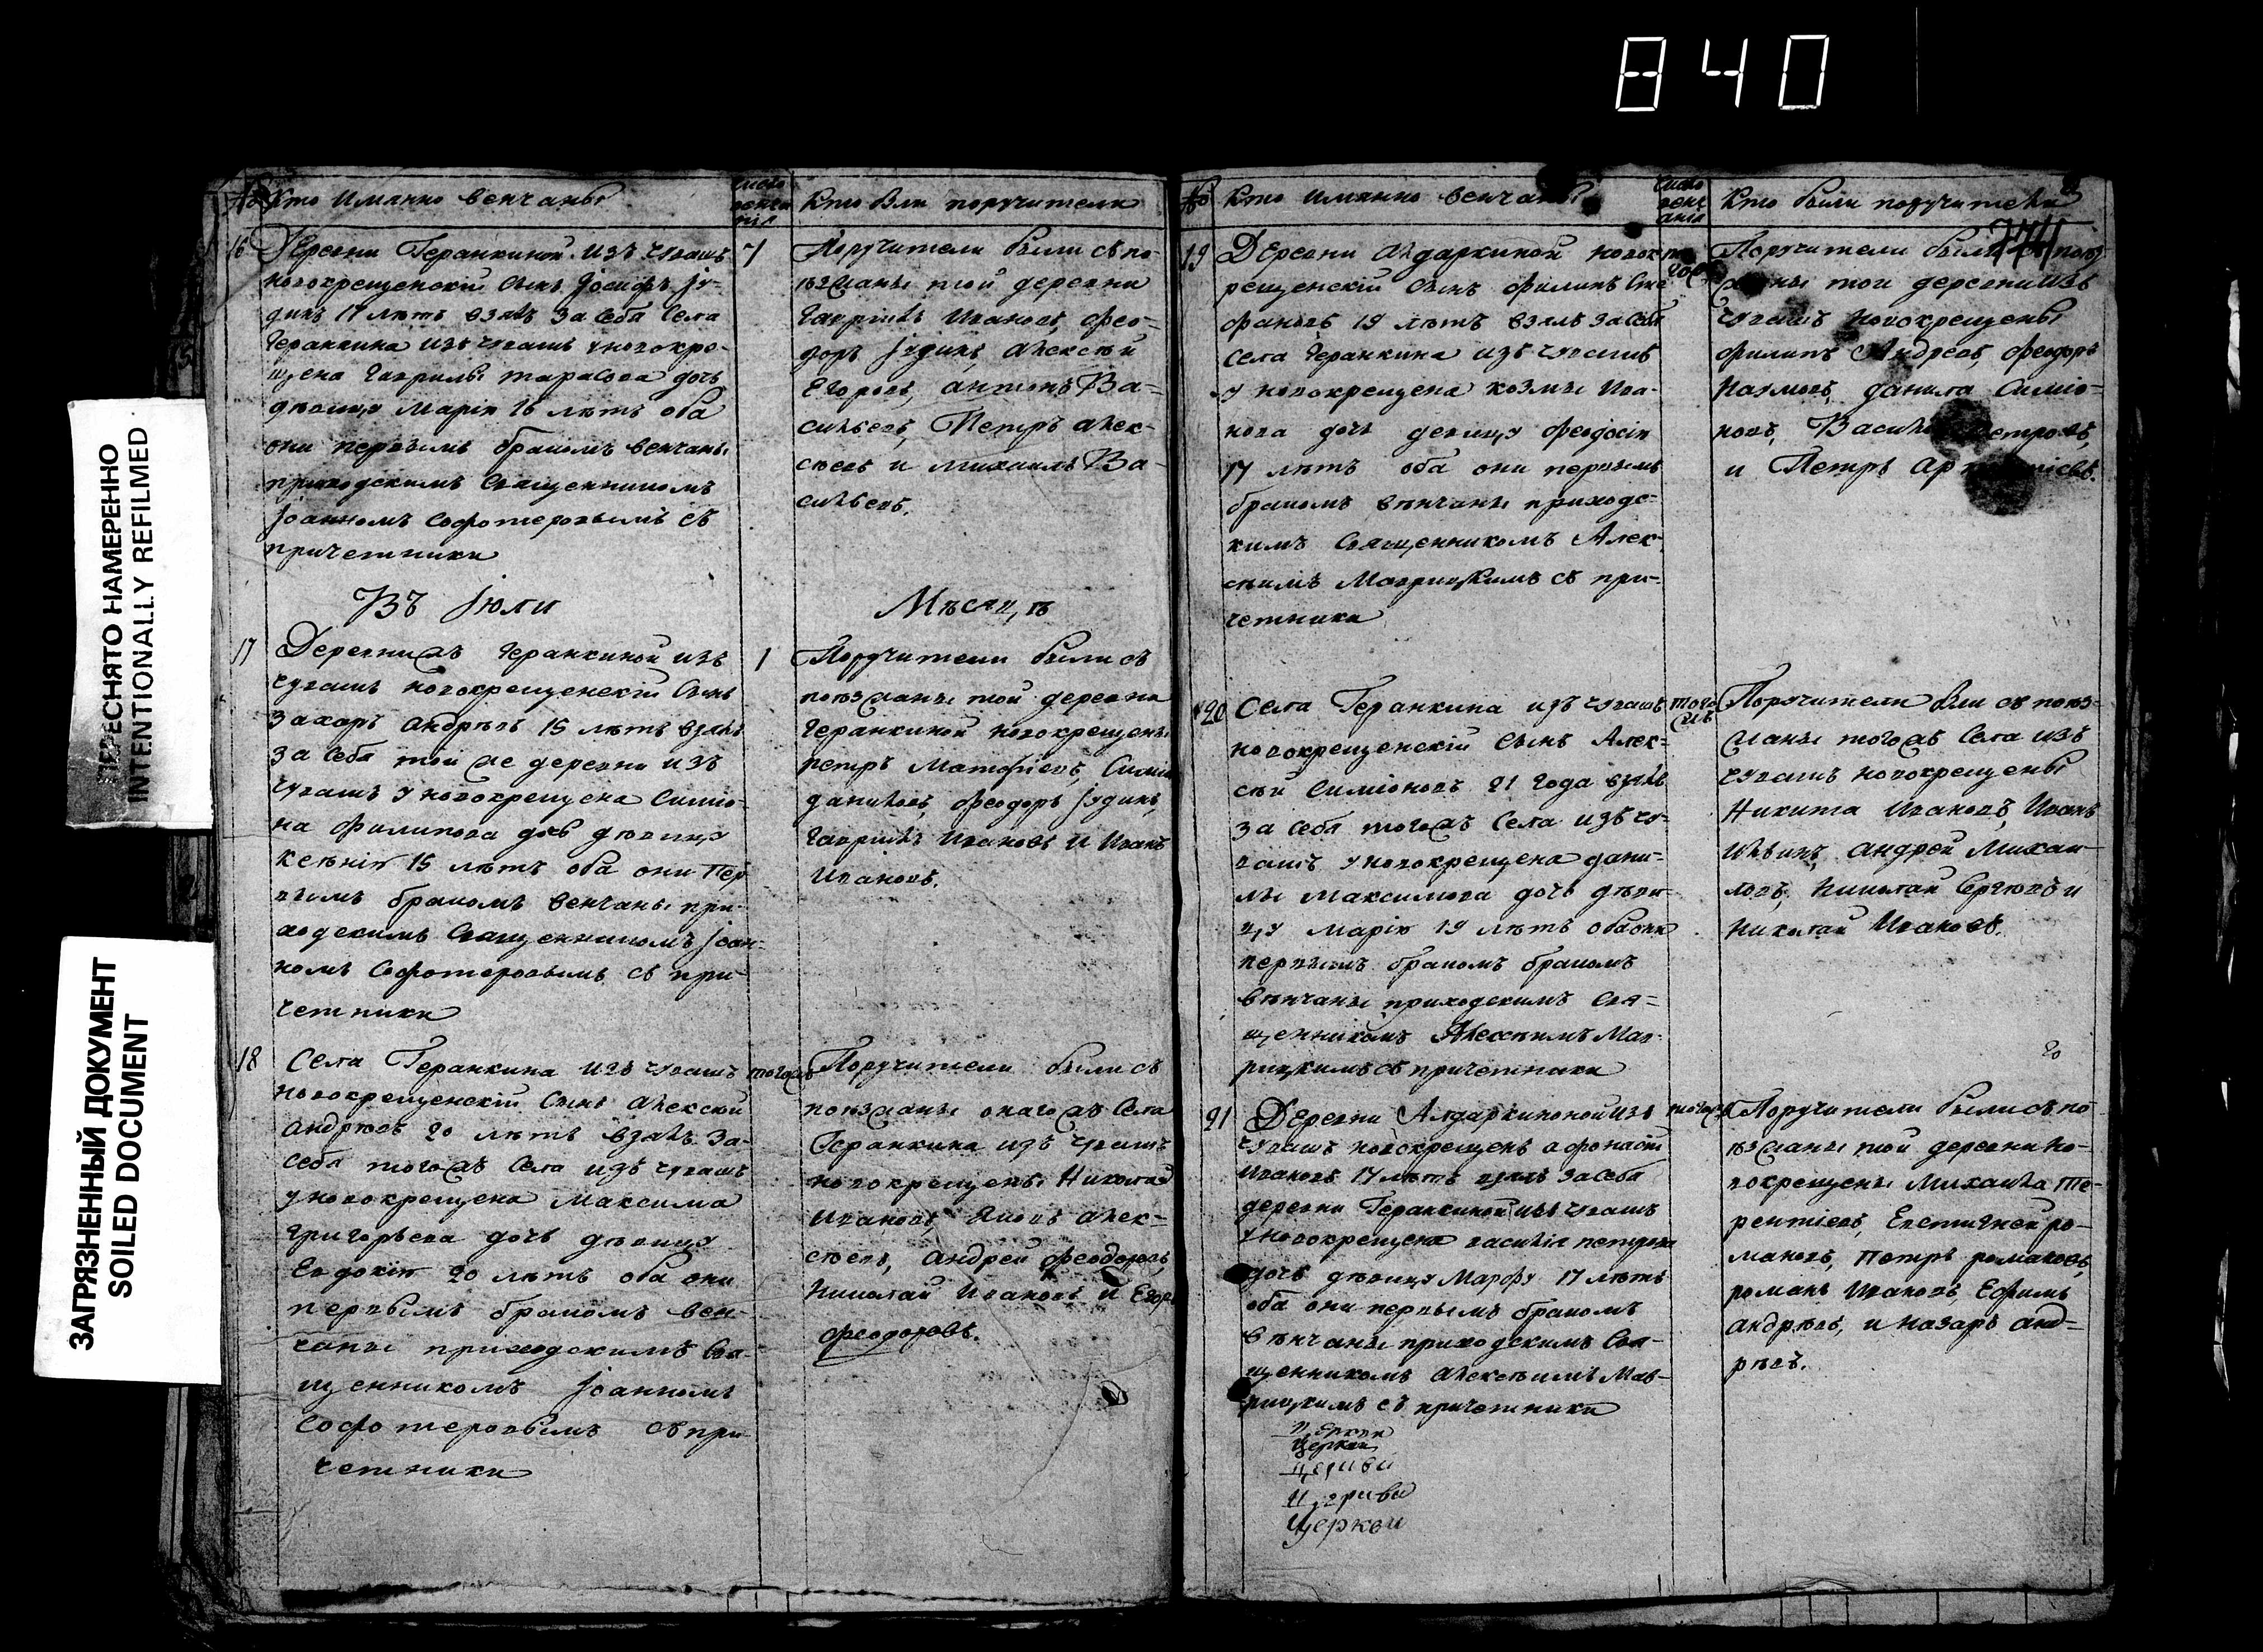 840
ПЕРЕСНЯТО НАМЕРЕННО
INTENTIONALLY REFILMED
ЗАГРЯЗНЕННЫЙ ДОКУМЕНТ
SOILED DOCUMENT
№ Кто имянно венчаны
число венчания
Кто были поручители
16 Деревни Геранкиной изъ чувашъ
новокрещенский сынъ Јосифъ Ју-
динъ 17 лѣтъ взялъ за себя села
Геранкина изъ чувашъ у новокре-
щена Гаврилы Тарасова дочь
дѣвицу Марію 16 лѣтъ оба
они первымъ бракомъ венчаны
приходскимъ священникомъ
Јоанномъ Софотеровымъ съ
причетники
7
Поручители были съ по-
ѣзжаны той деревни
Гаврилъ Ивановъ, Фео-
доръ Јудинъ, Алексѣй
Егоровъ, Антонъ Ва-
сильевъ, Петръ Алек-
сѣевъ и Михаилъ Ва-
сильевъ.
Въ Јюли
Мѣсяцѣ
17 Деревни жъ Геранкиной изъ
чувашъ новокрещенский сынъ
Захаръ Андрѣевъ 15 лѣтъ взялъ
за себя той же деревни изъ
чувашъ у новокрещена Симио-
на Филипова дочь дѣвицу
Ксѣнію 15 лѣтъ оба они пер
вымъ бракомъ венчаны при-
ходскимъ священникомъ Јоан-
номъ Софотеровымъ съ при-
четники
1
Поручители были съ
поѣзжаны той деревни
Геранкиной новокрещены
Петръ Матфіевъ, Симіо
Даниловъ, Феодоръ Јудинъ,
Гаврилъ Ивановъ и Иванъ
Ивановъ.
18 Села Геранкина изъ чувашъ
новокрещенский сынъ Алексѣй
Андрѣевъ 20 лѣтъ взялъ за-
себя того жъ села изъ чувашъ
у новокрещена Максима
Григорьева дочь дѣвицу
Евдокію 20 лѣтъ оба они
первымъ бракомъ вен-
чаны приходскимъ свя-
щенникомъ Јоанномъ
Софотеровымъ съ при
четники
тогожъ
Поручители были съ
поѣзжаны онаго жъ села
Геранкина изъ чувашъ
новокрещены Николай
Ивановъ Яковъ Алек-
сѣевъ, Андрей Феодоровъ
Николай Ивановъ и Егоръ
Феодоровъ.
№ Кто имянно венчаны
число венчания
Кто были поручители
741
19 Деревни Алдаркиной новок
рещенский сынъ Филипъ Сте
фановъ 19 лѣтъ взялъ за себя
села Геранкина изъ чувашъ
у новокрещена Козмы Ива-
нова дочь девицу Феодосію
17 лѣтъ оба они первымъ
бракомъ вѣнчаны приходс-
кимъ священникомъ Алек-
сѣимъ Маврицкимъ съ при-
четники
Поручители были съ поѣз
жаны той деревни изъ
чувашъ новокрещены
Филипъ Андреевъ, Феодоръ
Наумовъ, Данила Симіо-
новъ, Василей Петровъ,
и Петръ
20 Села Геранкина изъ чувашъ
новокрещенский сынъ Алек-
сѣй Симіоновъ 21 года взялъ
за себя того жъ села изъ чу-
вашъ у новокрещена Дани-
лы Максимова дочь дѣви-
цу Марію 19 лѣтъ оба они
первымъ бракомъ бракомъ
вѣнчаны приходскимъ свя-
щенникомъ Алексѣимъ Мав-
рицкимъ съ причетники
того жъ
Поручители были съ поѣз-
жаны того жъ села изъ
чувашъ новокрещены
Никита Ивановъ, Иванъ
Ильинъ, Андрей Михаи-
ловъ, Николай Сергѣевъ и
Николай Ивановъ.
20
21 Деревни Алдаркиноной изъ
чувашъ новокрещенъ Афонасій
Ивановъ 17 лѣтъ взялъ за себя
деревни Геранкиной изъ чувашъ
у новокрещена Василія Петрова
дочь дѣвицу Марфу 17 лѣтъ
оба они первымъ бракомъ
вѣнчаны приходскимъ свя-
щенникомъ Алексѣимъ Мав-
рицкимъ съ причетники
тогожъ
Поручители были съ по
ѣзжаны той деревни но-
вокрещены Михаила Те-
рентіевъ, Евстигней Ро-
мановъ, Петръ Романовъ,
Романъ Ивановъ, Ефимъ
Андрѣевъ, и Назаръ Анд-
рѣевъ.
церкви
Церкви
церкви
Церкви
Церкви